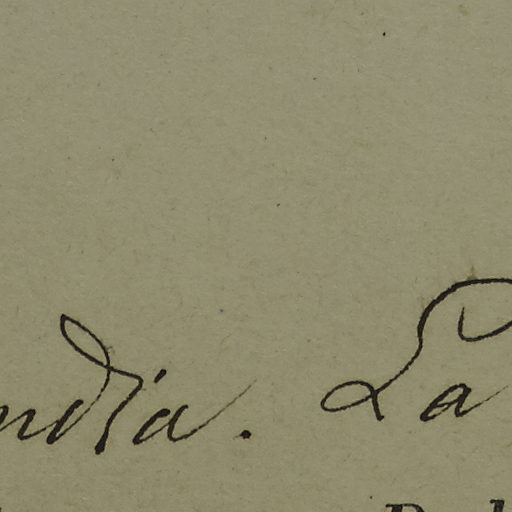 ndia. La